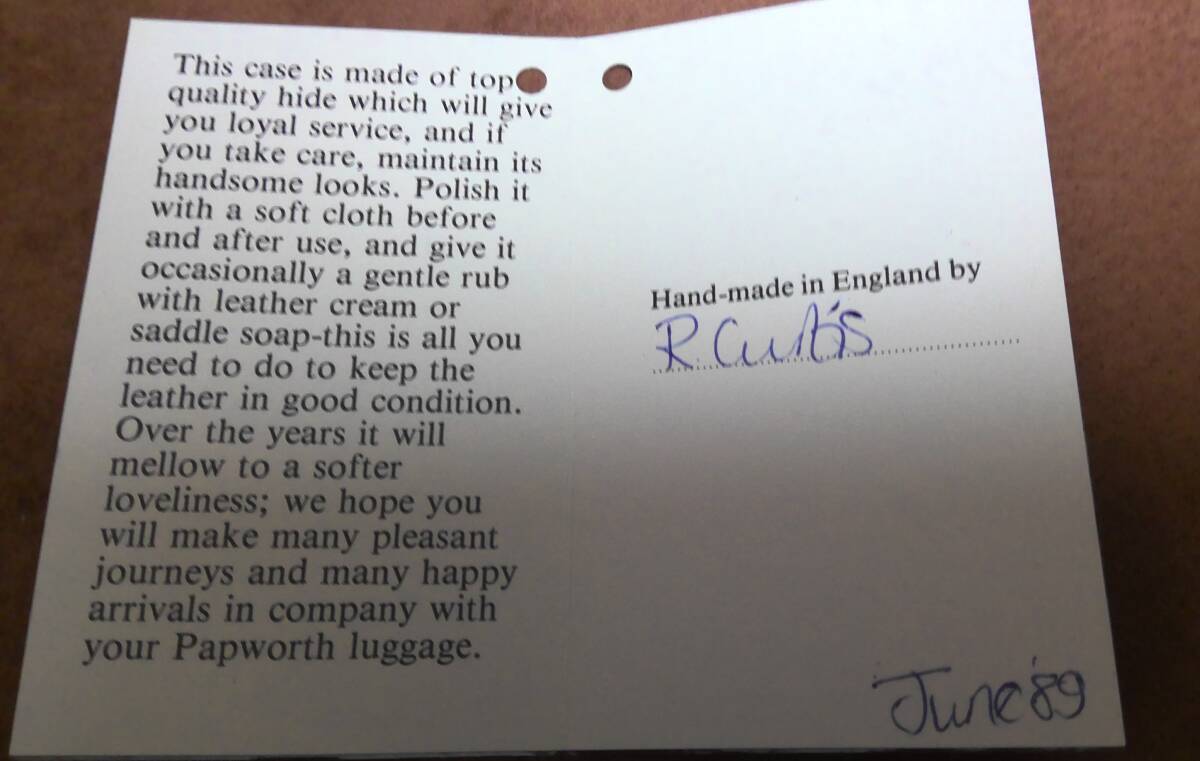 This case is made of top
quality hide which will give
you loyal service, and if
you take care, maintain its
handsome looks. Polish it
with a soft cloth before
and after use, and give it
occasionally a gentle rub
with leather cream or
saddle soap-this is all you
need to do to keep the
leather in good condition.
Over the years it will
mellow to a softer
loveliness; we hope you
will make many pleasant
journeys and many happy
arrivals in company with
your Papworth luggage.
Hand-made in England by
R Curtis
June '89